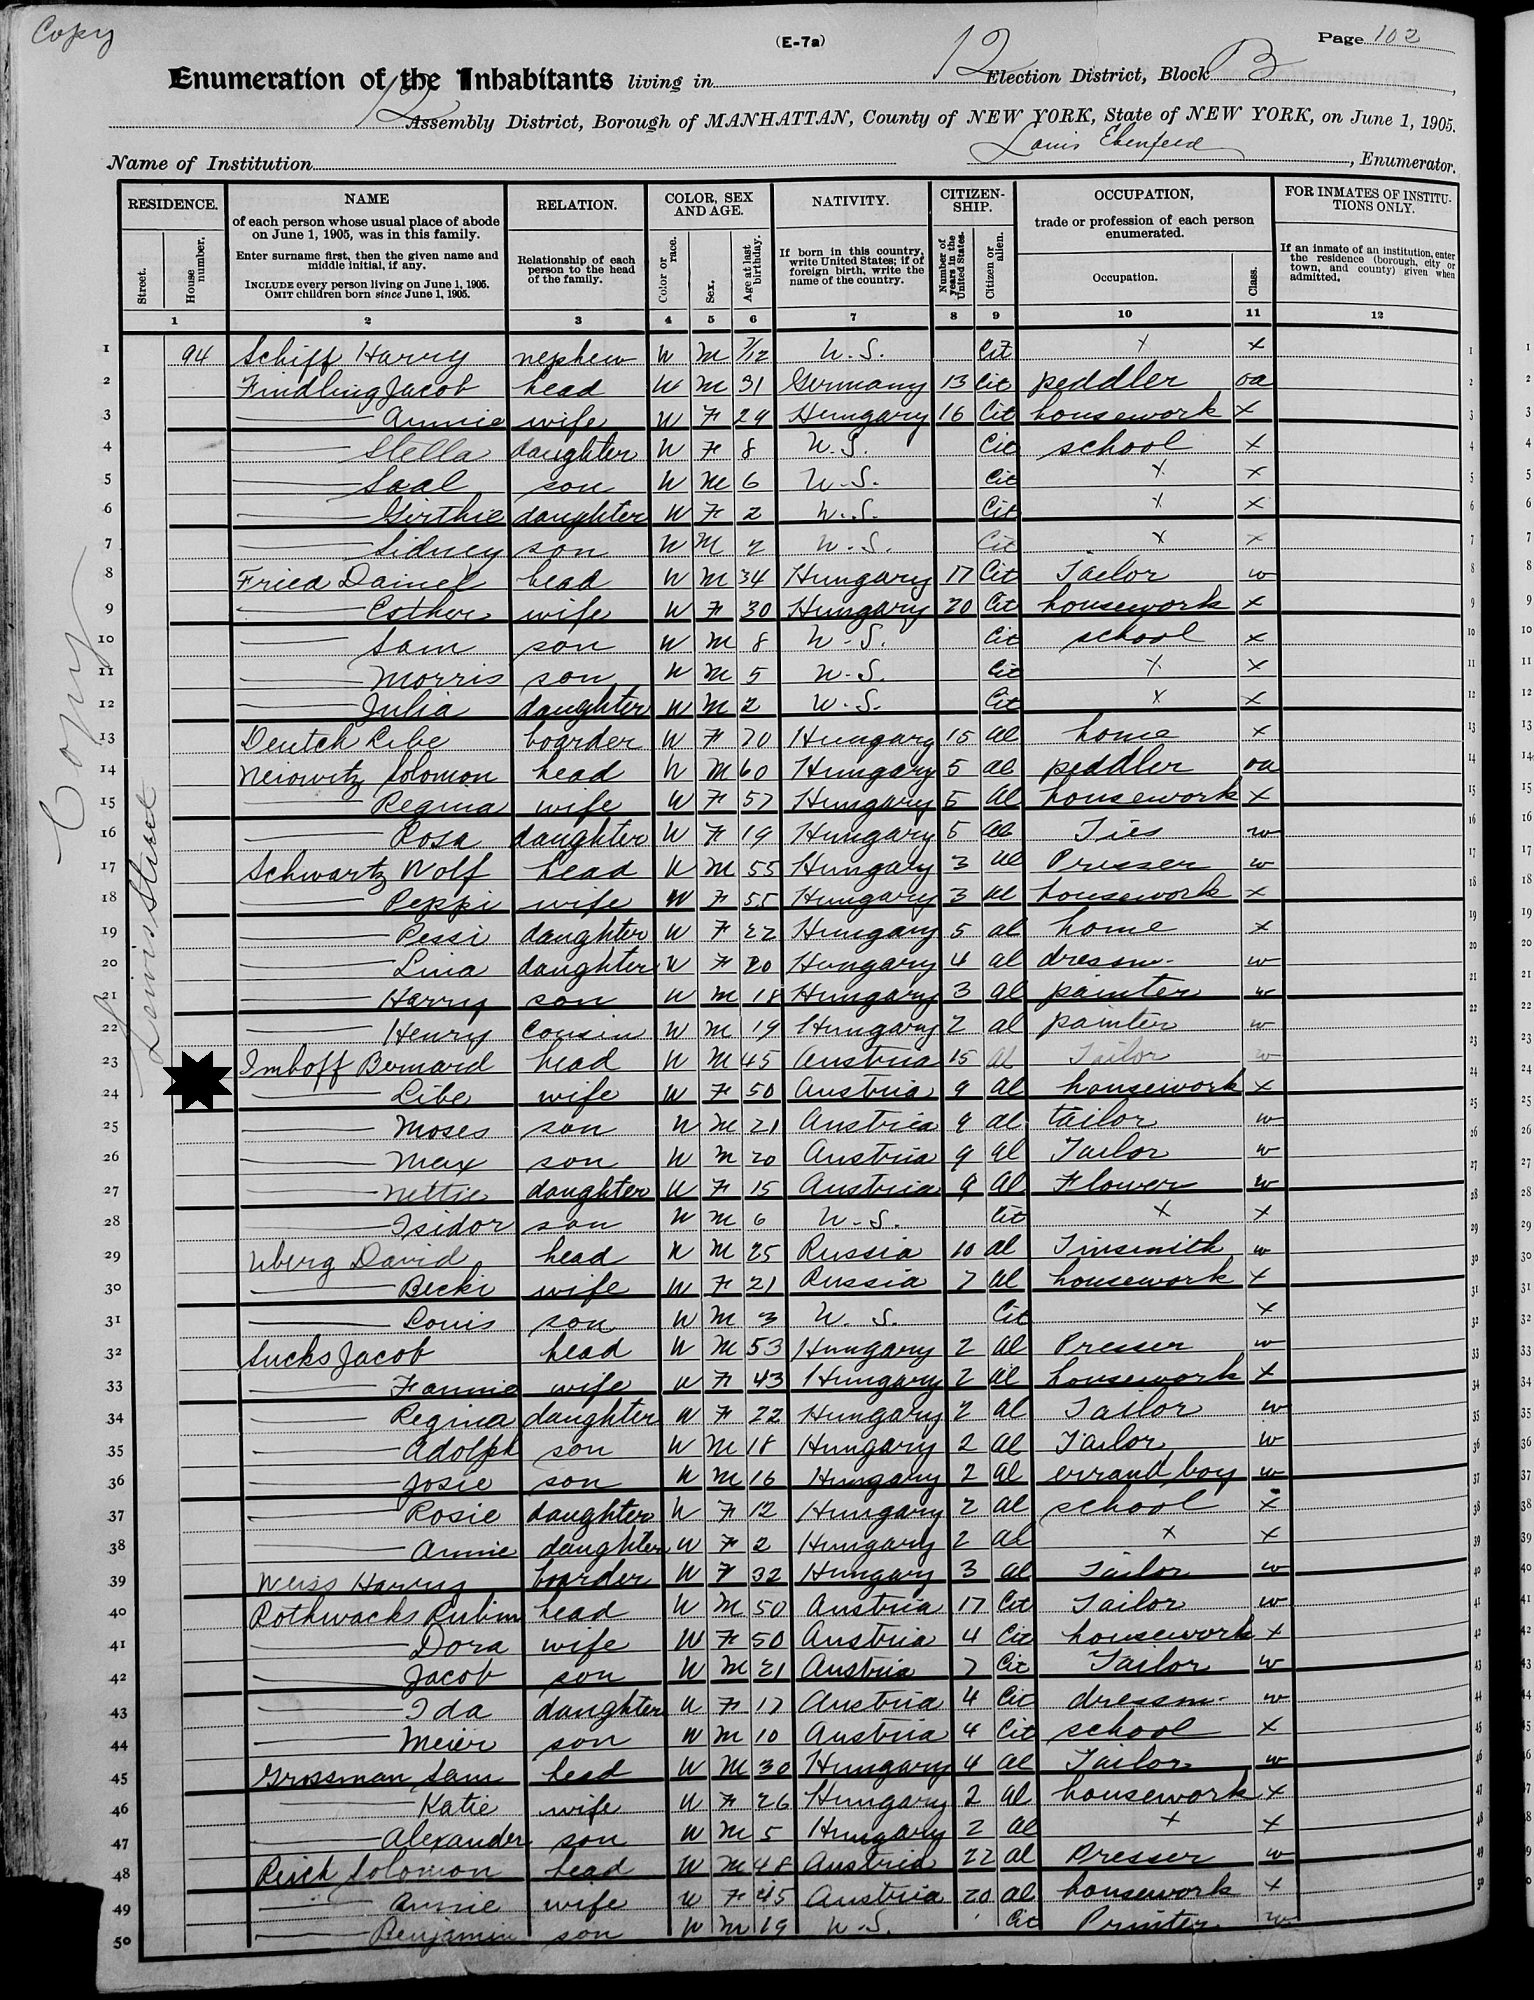 Copy
(E-7a)
Page 102
Enumeration of the Inhabitants living in 12 Election District, Block B,
12 Assembly District, Borough of MANHATTAN, County of NEW YORK, State of NEW YORK, on June 1, 1905.
Name of Institution Louis, Enumerator.
RESIDENCE.
Street.
House number.
1
NAME
of each person whose usual place of abode on June 1, 1905, was in this family.
Enter surname first, then the given name and middle initial, if any.
INCLUDE every person living on June 1, 1905.
OMIT children born since June 1, 1905.
2
RELATION.
Relationship of each person to the head of the family.
3
COLOR, SEX AND AGE.
Color or race.
Sex.
Age at last birthday.
4 5 6
NATIVITY.
If born in this country, write United States; if of foreign birth, write the name of the country.
7
CITIZENSHIP.
Number of years in the United States.
Citizen or alien.
8 9
OCCUPATION,
trade or profession of each person enumerated.
Occupation.
Class.
10 11
FOR INMATES OF INSTITUTIONS ONLY.
If an inmate of an institution, enter the residence (borough, city or town, and county) given when admitted.
12
Copy
1 94 Schiff Harry nephew W M 7/12 U.S. Cit x x
2 Findling Jacob head W M 31 Germany 13 Cit peddler oa
3 Annie wife W F 29 Hungary 16 Cit housework x
4 Stella daughter W F 8 U.S. Cit school x
5 Saal son W M 6 U.S. Cit x x
6 Girthie daughter W F 2 U.S. Cit x x
7 Sidney son W M 2 U.S. Cit x x
8 Fried Dainel head W M 34 Hungary 17 Cit Tailor w
9 Esther wife W F 30 Hungary 20 Cit housework x
10 Sam son W M 8 U.S. Cit school x
11 Morris son W M 5 U.S. Cit x x
12 Julia daughter W M 2 U.S. Cit x x
13 Deutch Libe boarder W F 70 Hungary 15 al home x
14 Solomon head W M 60 Hungary 5 al peddler oa
15 Regina wife W F 57 Hungary 5 al housework x
16 Rosa daughter W F 19 Hungary 5 al Ties w
17 Schwartz Wolf head W M 55 Hungary 3 al Presser w
18 Peppi wife W F 55 Hungary 3 al housework x
19 Pessi daughter W F 22 Hungary 5 al home x
20 Lina daughter W F 20 Hungary 4 al dressm. w
21 Harry son W M 18 Hungary 3 al painter w
22 Henry Cousin W M 19 Hungary 2 al painter w
23 Imhoff Bernard head W M 45 Austria 15 al Tailor w
24 Libe wife W F 50 Austria 9 al housework x
25 Moses son W M 21 Austria 9 al tailor w
26 Max son W M 20 Austria 9 al Tailor w
27 Nettie daughter W F 15 Austria 9 al Flower w
28 Isidor son W M 6 U.S. Cit x x
29 Uberg David head W M 25 Russia 10 al Tinsmith w
30 Becki wife W F 21 Russia 7 al housework x
31 Louis son W M 3 U.S. Cit x
32 Sucks Jacob head W M 53 Hungary 2 al Presser w
33 Fannie wife W F 43 Hungary 2 al housework x
34 Regina daughter W F 22 Hungary 2 al Tailor w
35 Adolph son W M 18 Hungary 2 al Tailor w
36 Josie son W M 16 Hungary 2 al errand boy w
37 Rosie daughter W F 12 Hungary 2 al school x
38 Annie daughter W F 2 Hungary 2 al x x
39 Weiss Harry boarder W F 32 Hungary 3 al Tailor w
40 Rothwacks Rubin head W M 50 Austria 17 Cit Tailor w
41 Dora wife W F 50 Austria 4 Cit housework x
42 Jacob son W M 21 Austria 7 Cit Tailor w
43 Ida daughter W F 17 Austria 4 Cit dressm. w
44 Meier son W M 10 Austria 4 Cit school x
45 Grossman Sam head W M 30 Hungary 4 al Tailor w
46 Katie wife W F 26 Hungary 2 al housework x
47 Alexander son W M 5 Hungary 2 al x x
48 Reich Solomon head W M 48 Austria 22 al Presser w
49 Annie wife W F 45 Austria 20 al housework x
50 Benjamin son W M 19 U.S. Cit Printer w